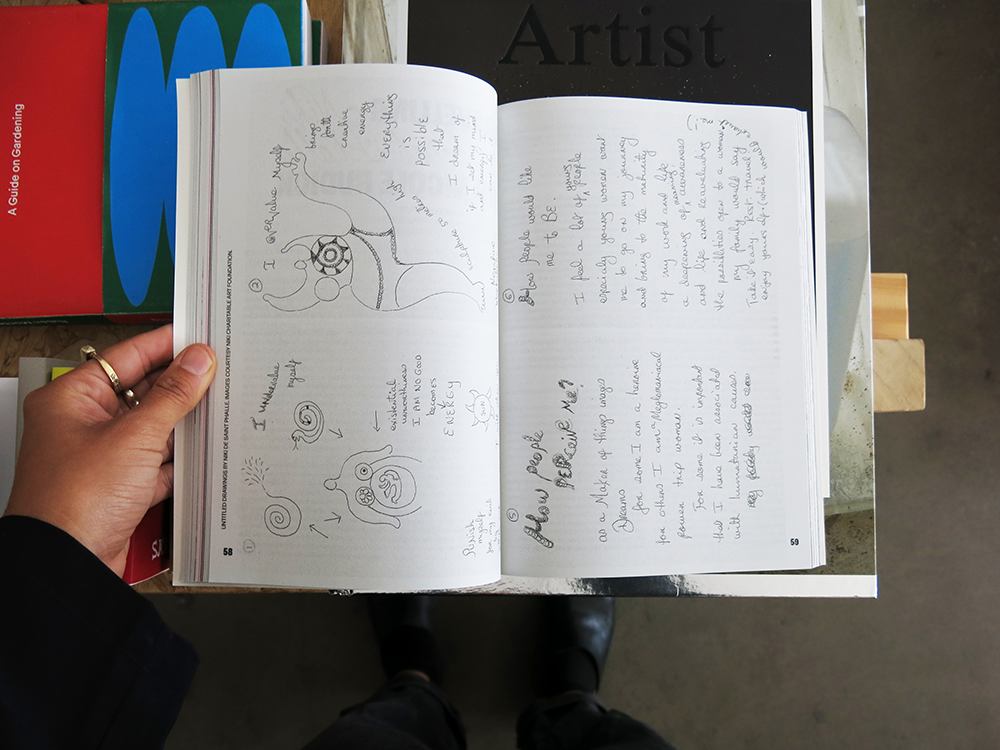 Artist
A Guide on Gardening
UNTITLED DRAWINGS BY NIKI DE SAINT PHALLE. IMAGES COURTESY NIKI CHARITABLE ART FOUNDATION.
58
①
I UNDERvalue
Myself
existential
unworthiness
I AM NO GOOD
becomes
ENERGY
②
I OVERvalue Myself
brings
forth
creative
energy
EVERYTHING
is
POSSIBLE
that
I dream of
if I set my mind
⑤
How people
PERCEIVE ME?
as a Maker of things images
Dreams
for some I am a heroine
for others I am a Meglomaniacal
power trip woman.
For some it is important
that I have been associated
with humatanian causes.
⑥
How people would like
me to BE.
I feel a lot of young people
especialy young women want
me to go on my journey
and bring to the maturity
of my work and life
a deepening of meaning, awareness
and life and Reevaluating
the possibilities open to a woman
my family would say
Take it easy Rest travel
enjoy yourself. (which would
59